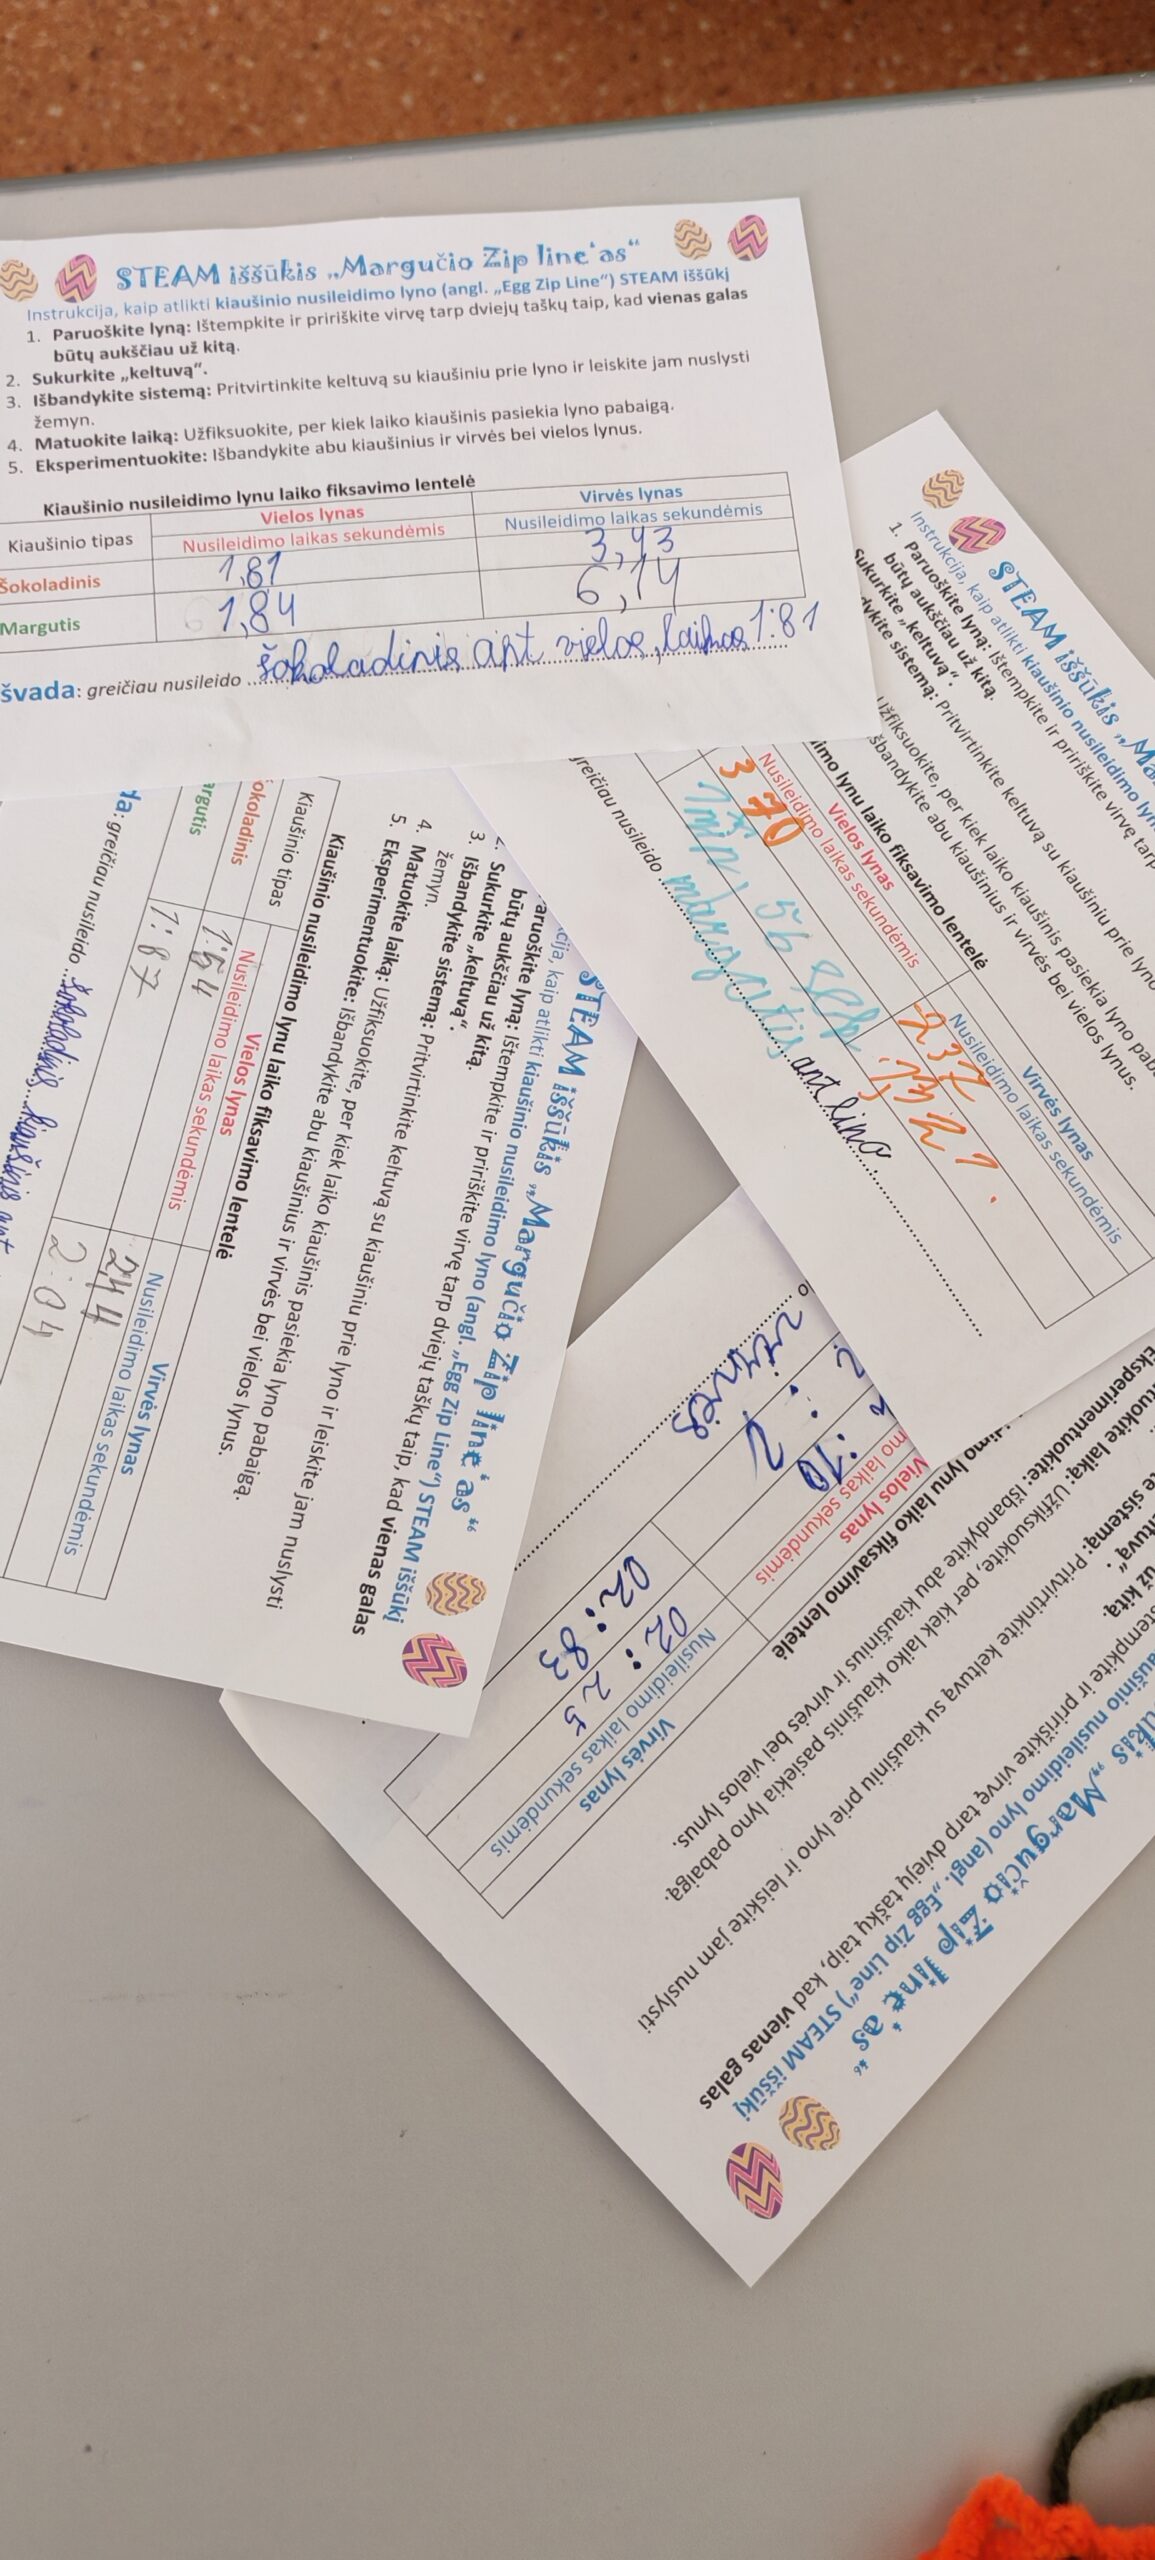 STEAM iššūkis „Margučio Zip line‘as“
Instrukcija, kaip atlikti kiaušinio nusileidimo lyno (angl. „Egg Zip Line“) STEAM iššūkį
1. Paruoškite lyną: Ištempkite ir pririškite virvę tarp dviejų taškų taip, kad vienas galas
būtų aukščiau už kitą.
2. Sukurkite „keltuvą“.
3. Išbandykite sistemą: Pritvirtinkite keltuvą su kiaušiniu prie lyno ir leiskite jam nuslysti
žemyn.
4. Matuokite laiką: Užfiksuokite, per kiek laiko kiaušinis pasiekia lyno pabaigą.
5. Eksperimentuokite: Išbandykite abu kiaušinius ir virvės bei vielos lynus.
Kiaušinio nusileidimo lynu laiko fiksavimo lentelė
Kiaušinio tipas Vielos lynas Virvės lynas
Nusileidimo laikas sekundėmis Nusileidimo laikas sekundėmis
Šokoladinis 1,81 3,43
Margutis 1,84 6,14
švada: greičiau nusileido šokoladinis ant vielos, laikas 1:81
STEAM iššūkis „Ma
Instrukcija, kaip atlikti kiaušinio nusileidimo lyn
1. Paruoškite lyną: Ištempkite ir pririškite virvę tarp
būtų aukščiau už kitą.
Sukurkite „keltuvą“.
dykite sistemą: Pritvirtinkite keltuvą su kiaušiniu prie lyno
Užfiksuokite, per kiek laiko kiaušinis pasiekia lyno pab
šbandykite abu kiaušinius ir virvės bei vielos lynus.
imo lynu laiko fiksavimo lentelė
Vielos lynas Virvės lynas
Nusileidimo laikas sekundėmis Nusileidimo laikas sekundėmis
3 70 237
1min 56 sek
greičiau nusileido margutis ant lino
STEAM iššūkis „Margučio Zip line‘as“
cija, kaip atlikti kiaušinio nusileidimo lyno (angl. „Egg Zip Line“) STEAM iššūkį
aruoškite lyną: Ištempkite ir pririškite virvę tarp dviejų taškų taip, kad vienas galas
būtų aukščiau už kitą.
2. Sukurkite „keltuvą“.
3. Išbandykite sistemą: Pritvirtinkite keltuvą su kiaušiniu prie lyno ir leiskite jam nuslysti
žemyn.
4. Matuokite laiką: Užfiksuokite, per kiek laiko kiaušinis pasiekia lyno pabaigą.
5. Eksperimentuokite: Išbandykite abu kiaušinius ir virvės bei vielos lynus.
Kiaušinio nusileidimo lynu laiko fiksavimo lentelė
Kiaušinio tipas Vielos lynas Virvės lynas
Nusileidimo laikas sekundėmis Nusileidimo laikas sekundėmis
okoladinis 1:54 244
argutis 1:87 2:04
da: greičiau nusileido šokoladinis kiaušinis ant
ūkis „Margučio Zip line‘as“
aušinio nusileidimo lyno (angl. „Egg Zip Line“) STEAM iššūkį
tempkite ir pririškite virvę tarp dviejų taškų taip, kad vienas galas
už kitą.
ltuvą“.
te sistemą: Pritvirtinkite keltuvą su kiaušiniu prie lyno ir leiskite jam nuslysti
tuokite laiką: Užfiksuokite, per kiek laiko kiaušinis pasiekia lyno pabaigą.
ksperimentuokite: Išbandykite abu kiaušinius ir virvės bei vielos lynus.
imo lynu laiko fiksavimo lentelė
Vielos lynas Virvės lynas
mo laikas sekundėmis Nusileidimo laikas sekundėmis
:10 02:25
2:2 02:83
o virvės